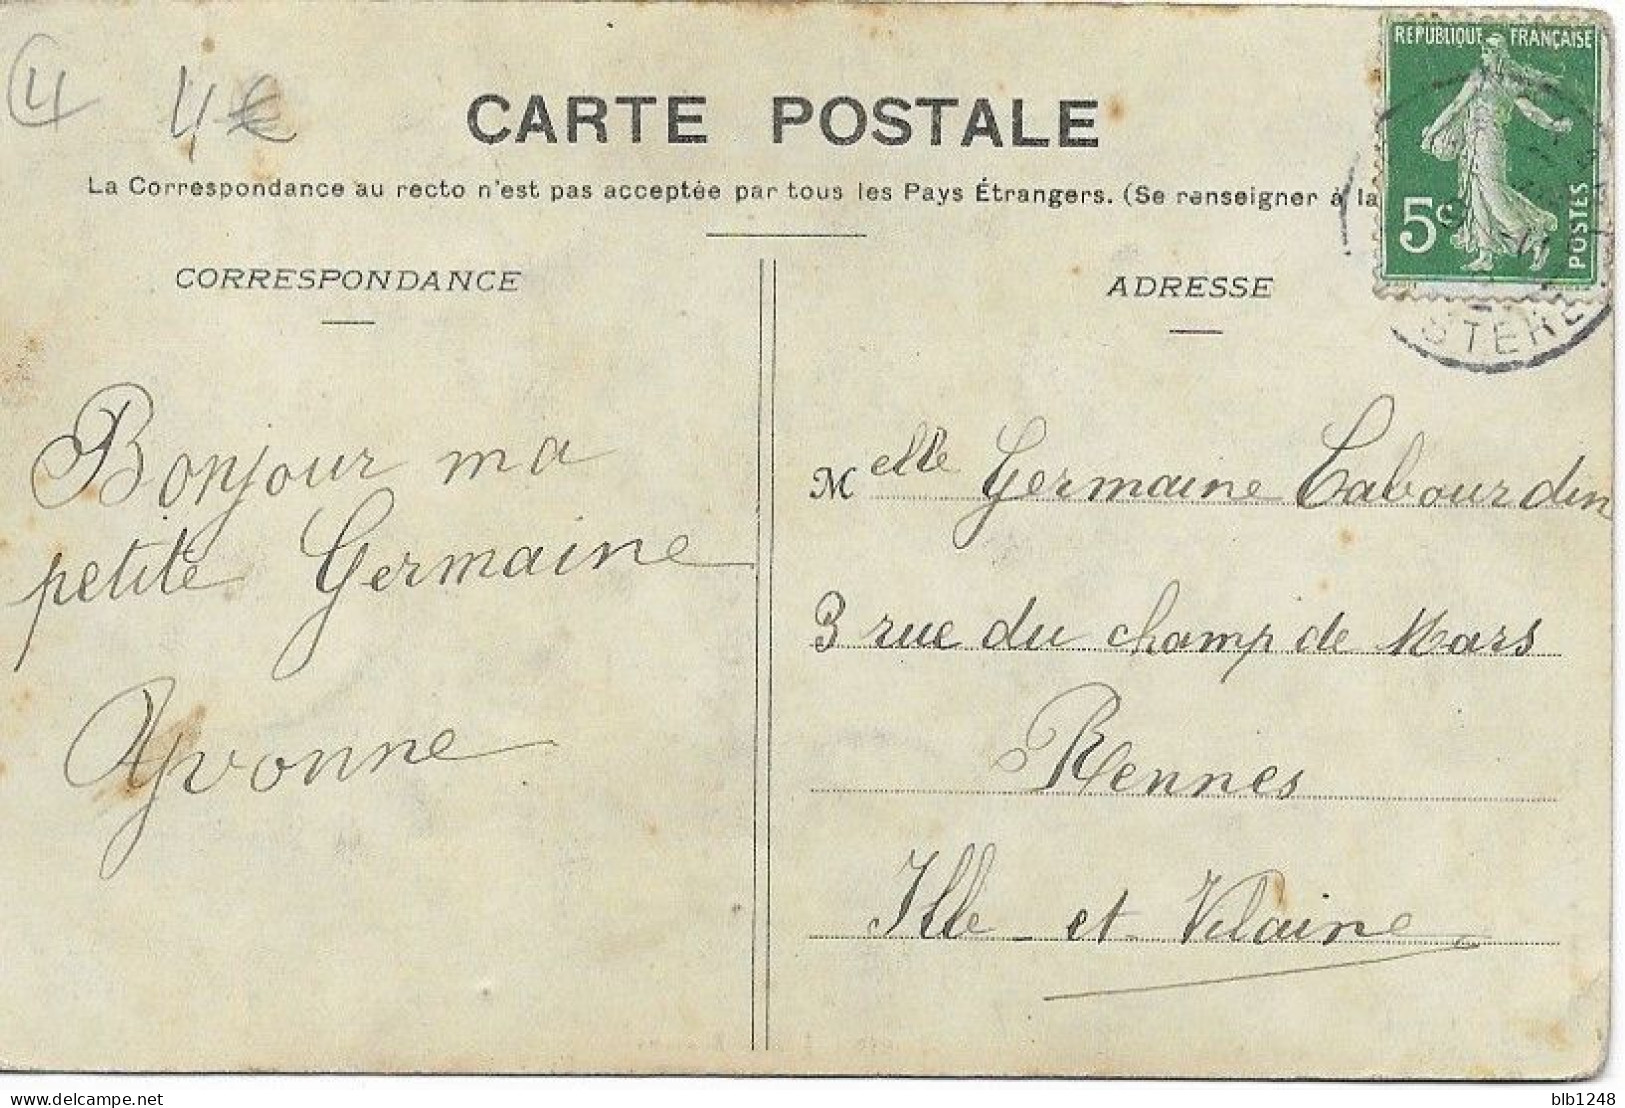 4
4€
CARTE POSTALE
La Correspondance au recto n'est pas acceptée par tous les Pays Étrangers. (Se renseigner à la
REPUBLIQUE FRANÇAISE
5c
POSTES
STERE
CORRESPONDANCE
Bonjour ma
petite Germaine
Yvonne
ADRESSE
Melle Germaine Tabourdin
3 rue du champ de Mars
Rennes
Ille et Vilaine
delcampe.net
blb1248